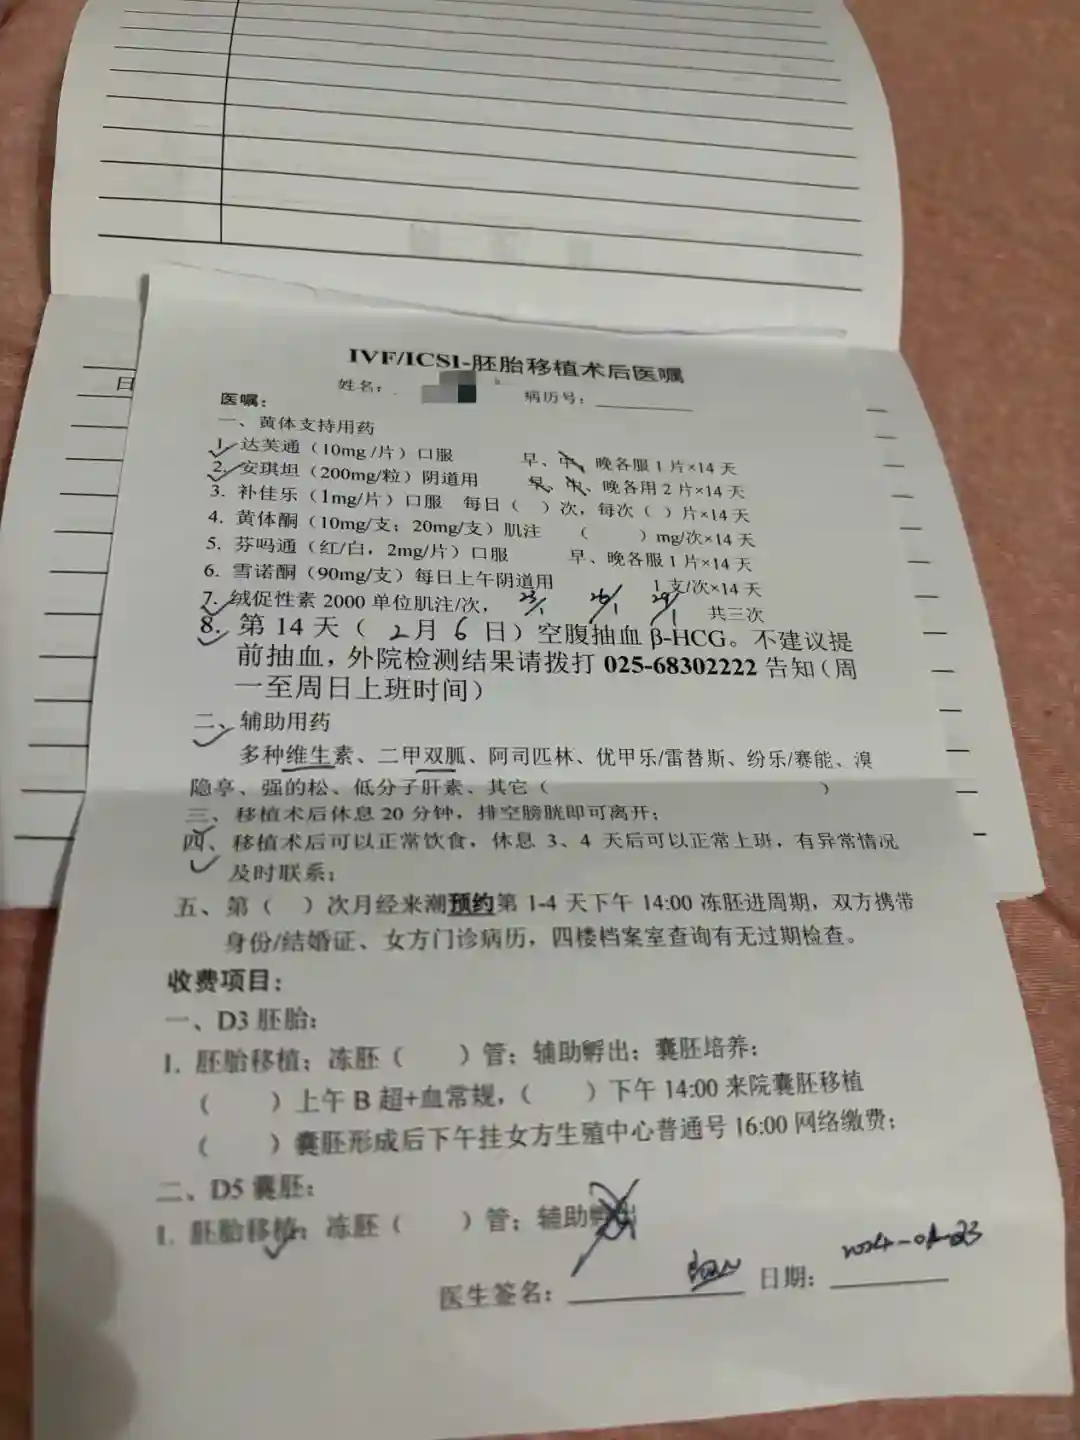 日
IVF/ICSI-胚胎移植术后医嘱
姓名： 病历号：
医嘱：
一、黄体支持用药
1. 达芙通（10mg /片）口服 早、中、晚各服 1 片×14 天
2. 安琪坦（200mg/粒）阴道用 早、中、晚各用 2 片×14 天
3. 补佳乐（1mg/片）口服 每日（ ）次，每次（ ）片×14 天
4. 黄体酮（10mg/支；20mg/支）肌注 （ ）mg/次×14 天
5. 芬吗通（红/白，2mg/片）口服 早、晚各服 1 片×14 天
6. 雪诺酮（90mg/支）每日上午阴道用 1 支/次×14 天
7. 绒促性素 2000 单位肌注/次， 23/1 26/1 29/1 共三次
8. 第 14 天（ 2 月 6 日）空腹抽血 β-HCG。不建议提
前抽血，外院检测结果请拨打 025-68302222 告知（周
一至周日上班时间）
二、辅助用药
多种维生素、二甲双胍、阿司匹林、优甲乐/雷替斯、纷乐/赛能、溴
隐亭、强的松、低分子肝素、其它（ ）
三、移植术后休息 20 分钟，排空膀胱即可离开；
四、移植术后可以正常饮食，休息 3、4 天后可以正常上班，有异常情况
及时联系；
五、第（ ）次月经来潮预约第 1-4 天下午 14:00 冻胚进周期，双方携带
身份/结婚证、女方门诊病历，四楼档案室查询有无过期检查。
收费项目：
一、D3 胚胎：
1. 胚胎移植；冻胚（ ）管；辅助孵出；囊胚培养；
（ ）上午 B 超+血常规，（ ）下午 14:00 来院囊胚移植
（ ）囊胚形成后下午挂女方生殖中心普通号 16:00 网络缴费；
二、D5 囊胚：
1. 胚胎移植；冻胚（ ）管；辅助孵出
医生签名： 日期： 2024-01-23